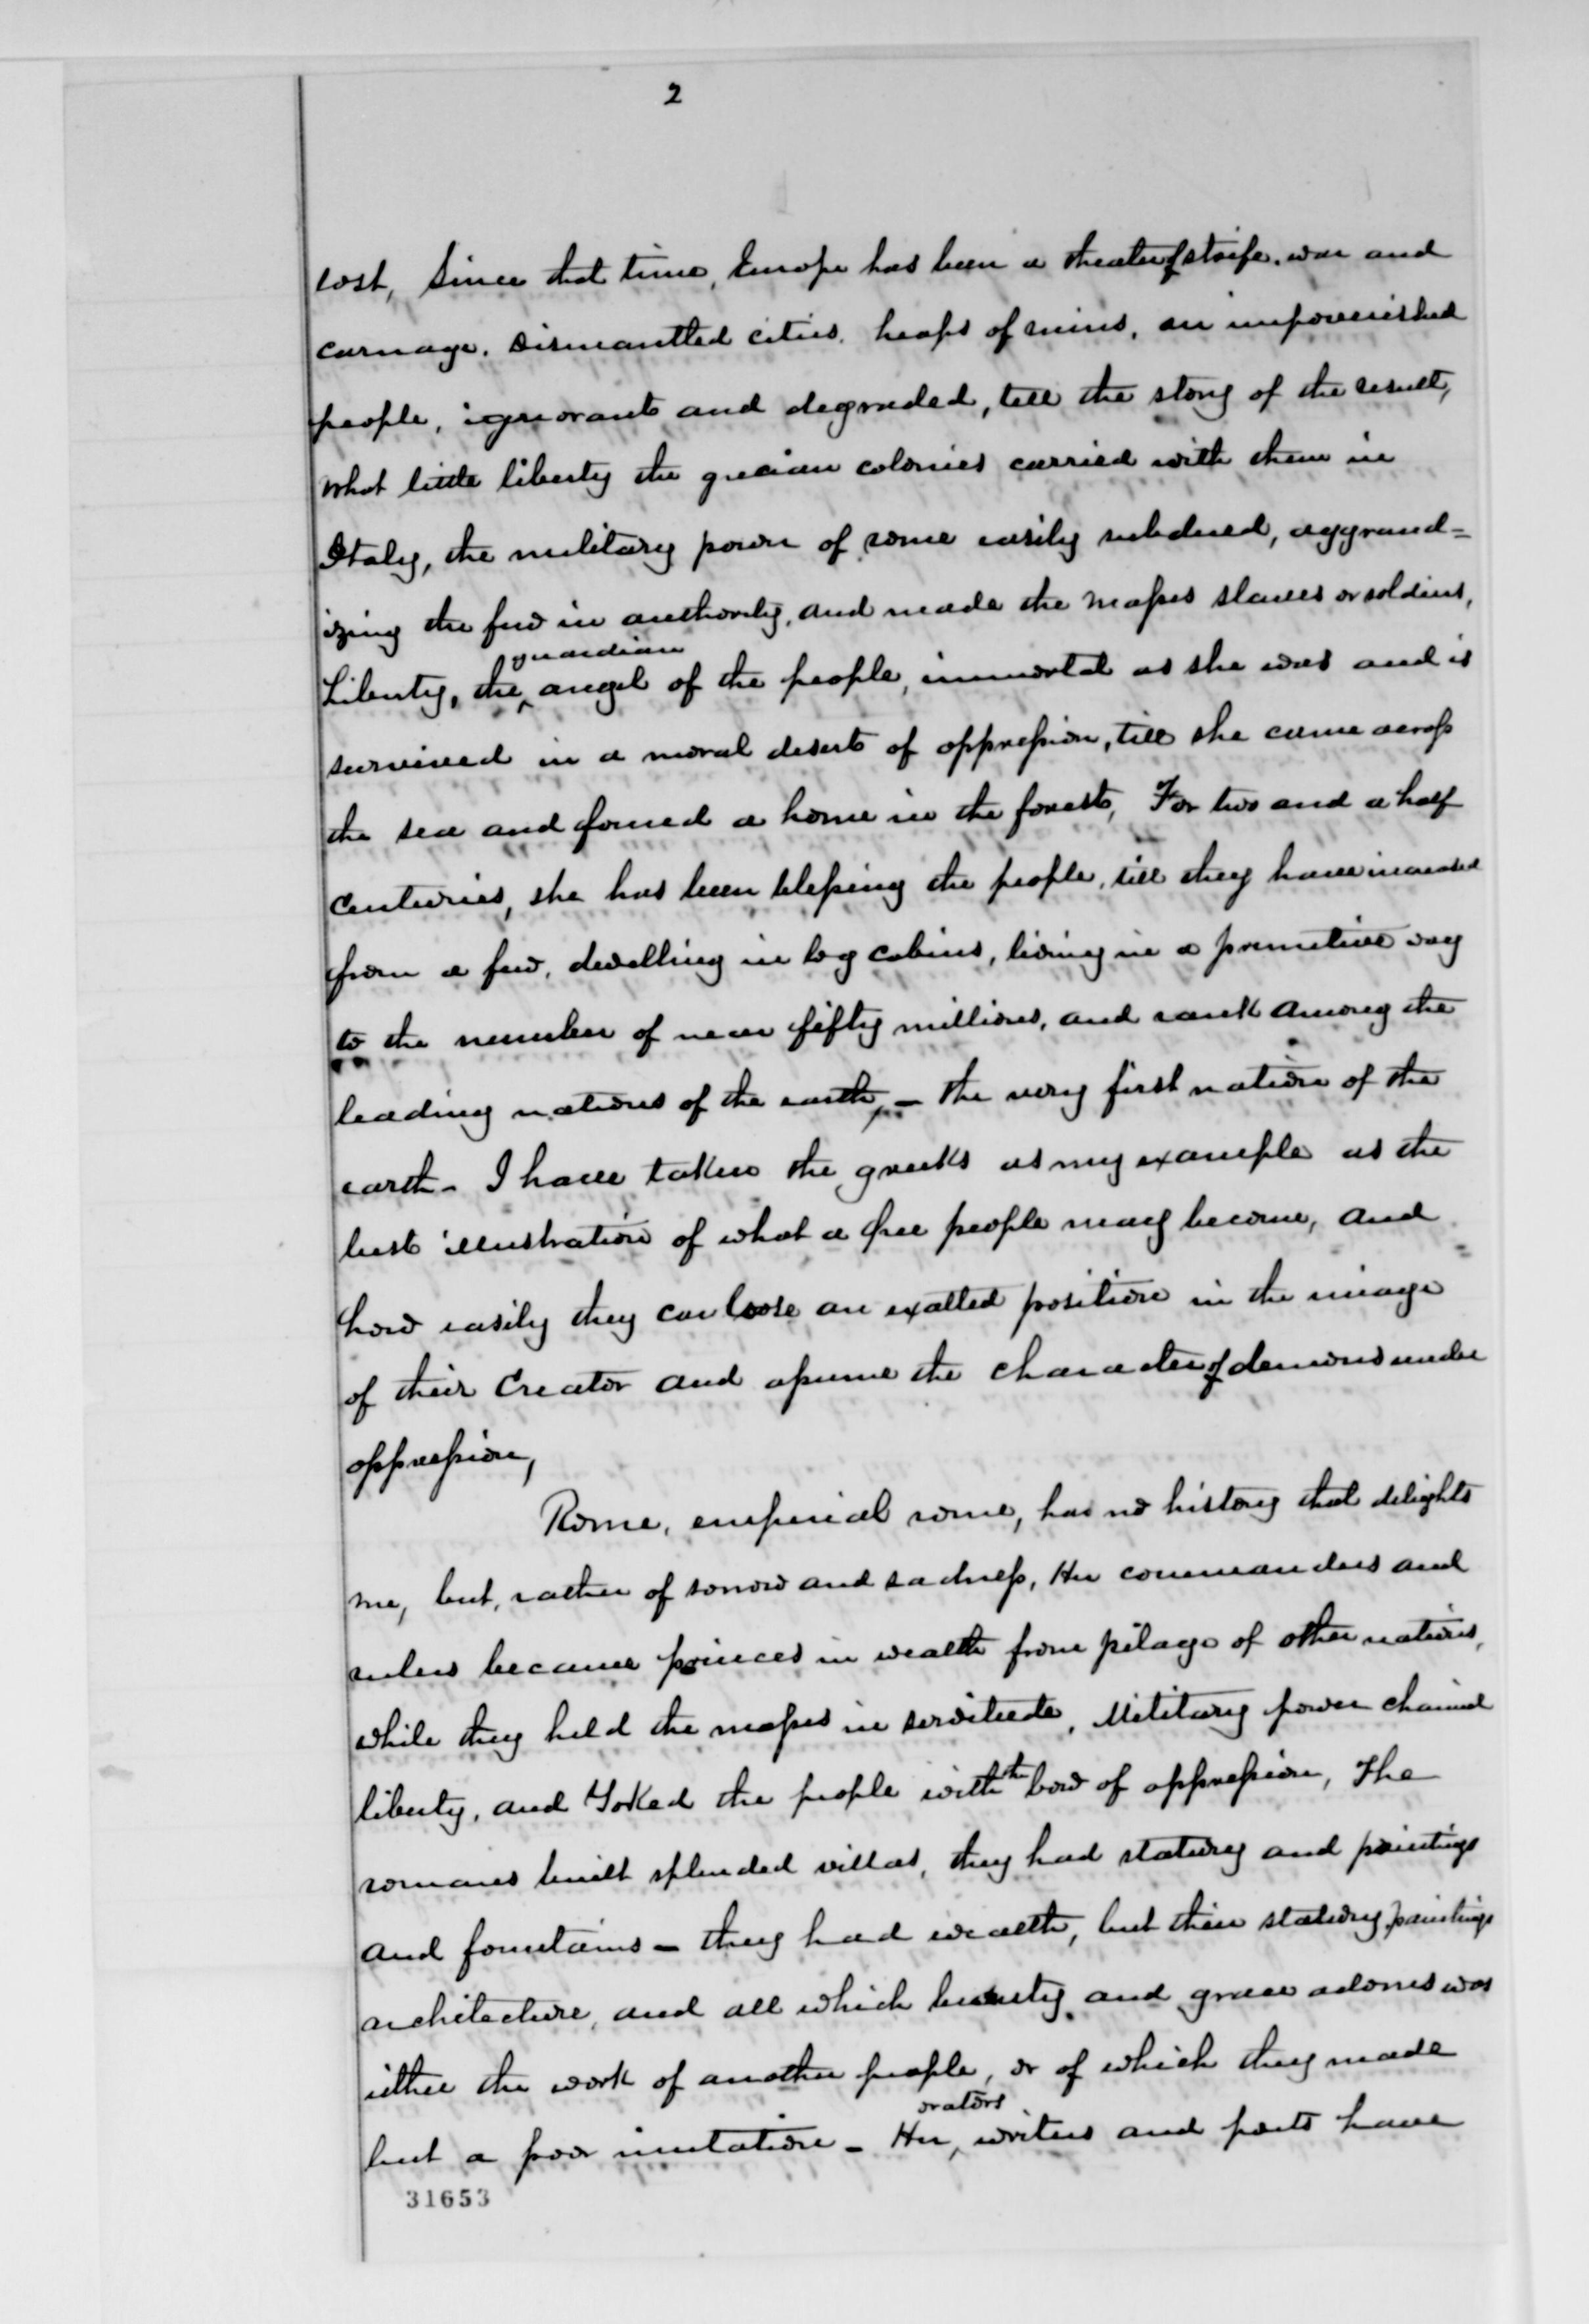 2
lost, Since that time, Europe has been a theater of strife, war and
carnage. Dismantled cities, heaps of ruins, an impoverished
people, ignorant and degraded, tell the story of the result,
What little liberty the grecian colonies carried with them in
Italy, the military power of rome easily subdued, aggrand=
izing the few in authority, and made the masses slaves or soldiers,
guardian
Liberty, the ^ angel of the people, immortal as she was and is
survived in a moral desert of oppression, till she came across
the sea and found a home in the forest, For two and a half
centuries, she has been blessing the people, till they have increased
from a few, dwelling in log cabins, living in a primitive way
to the number of near fifty millions, and rank among the
leading nations of the earth, – the very first nation of the
earth – I have taken the greeks as my example as the
best illustration of what a free people may become, and
how easily they can loose an exalted position in the image
of their Creator and assume the character of demons under
oppression,
Rome, emperial rome, has no history that delights
me, but, rather of sorrow and sadness, Her commanders and
rulers became princes in wealth from pilage of other nations,
while they held the masses in servitude, Military power chained
liberty, and Yoked the people with the bow of oppression, The
romans built splended villas, they had statuary and paintings
and fountains – they had wealth, but their statuary, paintings
architecture, and all which beauty and grace adorns was
either the work of another people, or of which they made
orators
but a poor imitation – Her, writers and poets have
31653